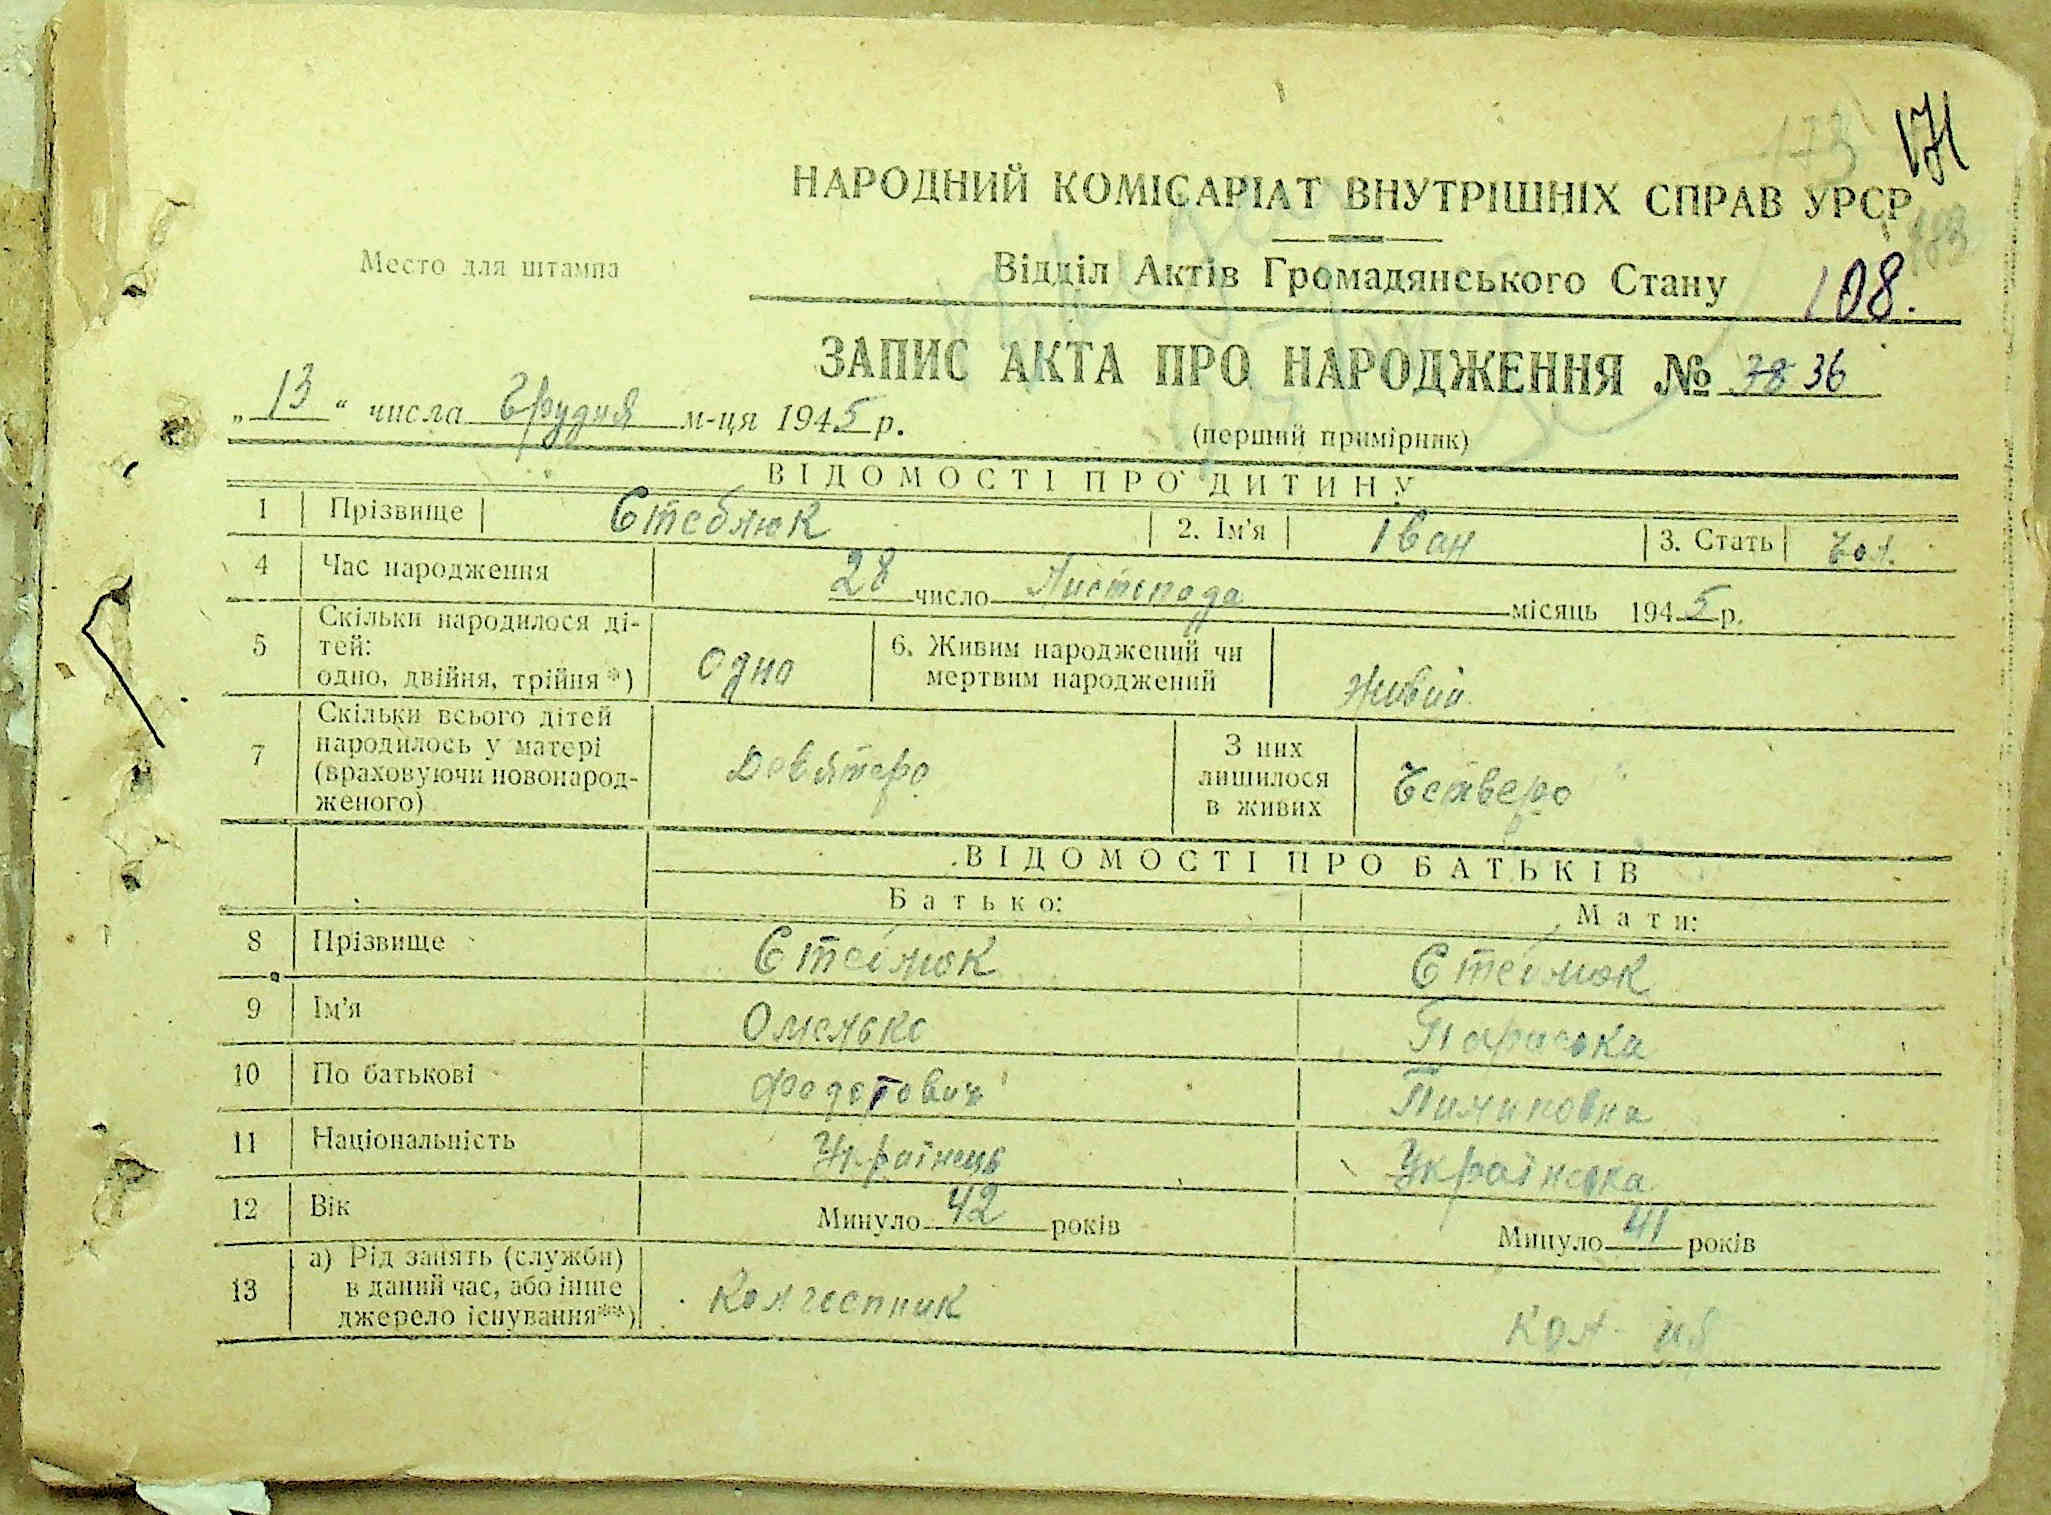 171
173
НАРОДНИЙ КОМІСАРІАТ ВНУТРІШНІХ СПРАВ УРСР
Место для штампа
Відділ Актів Громадянського Стану
108.
ЗАПИС АКТА ПРО НАРОДЖЕННЯ № 38 36
„13“ числа Грудня м-ця 1945 р.
(перший примірник)
ВІДОМОСТІ ПРО ДИТИНУ
1 Прізвище Стеблюк 2. Ім'я Іван 3. Стать Чол.
4 Час народження 28 число Листопада місяць 1945 р.
5 Скільки народилося ді-
тей:
одно, двійня, трійня*) одно 6. Живим народжений чи
мертвим народжений живий
7 Скільки всього дітей
народилось у матері
(враховуючи новонарод-
женого) Девятеро З них
лишилося
в живих Четверо
ВІДОМОСТІ ПРО БАТЬКІВ
Батько: Мати:
8 Прізвище Стеблюк Стеблюк
9 Ім'я Омелько Париська
10 По батькові Федотович Пилиповна
11 Національність Українець Українська
12 Вік Минуло 42 років Минуло 41 років
13 а) Рід занять (служби)
в даний час, або інше
джерело існування**) Колгоспник